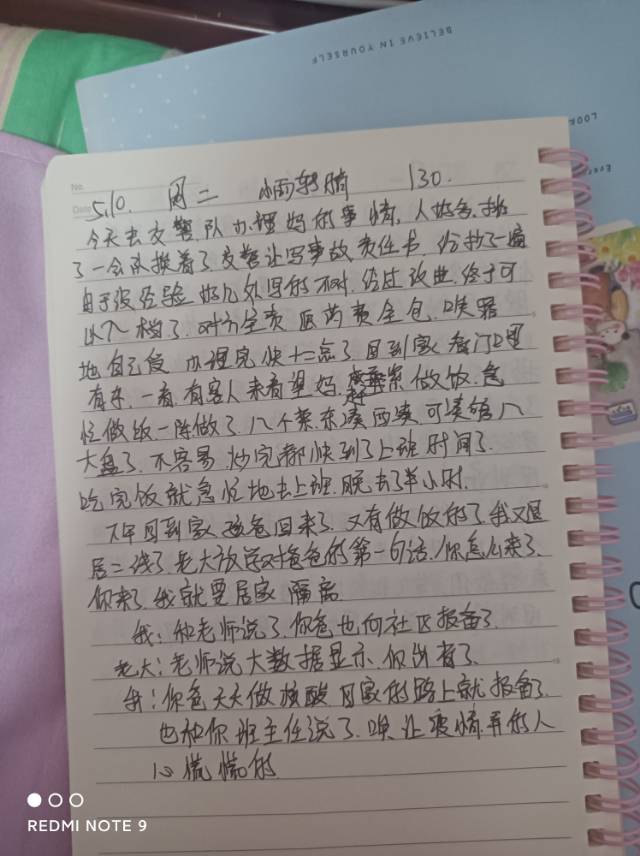 BELIEVE IN YOURSELF
LOOK
Ever
No.
Date
5.10. 周二 小雨转晴 130.
今天去交警队办理妈的事情,人好多,排
了一会队挨着了,交警让写事故责任书,份抄了一遍
由于没经验,好几处写的不对,经过改典,终于可
以入档了,对方全责医药费全包,唉,署
地自己负,办理完快十二点了,回到家,看门口里
有车,一看,有客人来看望妈,做饭,急
忙做饭,一阵做了八个菜,东凑西凑,可凑够八
大盘了,不容易,炒完都快到了上班时间了.
吃完饭就急忙地去上班,晚去了半小时.
下午回到家,孩爸回来了,又有做饭的了,我又退
居二线了,老大放学对爸爸的第一句话,你怎么来了,
你来了,我就要居家隔离
我:和老师说了,你爸也向社区报备了.
老大:老师说大数据显示,你出省了.
我:你爸天天做核酸,回家的路上就报备了.
也和你班主任说了,唉,让疫情弄的人
心慌慌的
REDMI NOTE 9